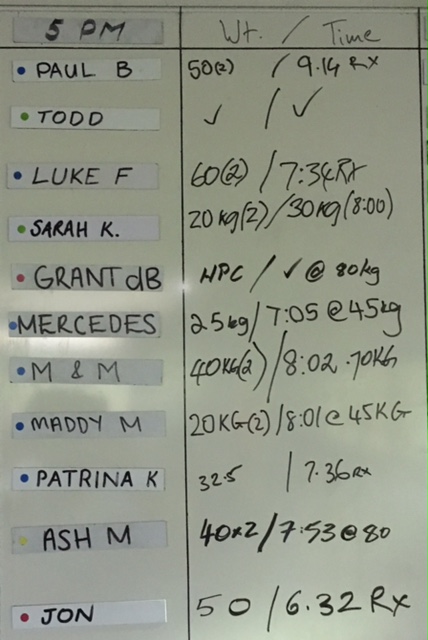 5 PM Wt. / Time
PAUL B 50(2) / 9.14 Rx
TODD ✓ / ✓
LUKE F 60(2) / 7:34 Rx
SARAH K. 20kg(2) / 30kg (8:00)
GRANT dB HPC / ✓ @ 80kg
MERCEDES 25kg / 7:05 @ 45kg
M & M 40KG(2) / 8:02 · 70KG
MADDY M 20KG(2) / 8:01 @ 45KG
PATRINA K 32.5 / 7.36 Rx
ASH M 40x2 / 7:53 @ 80
JON 50 / 6.32 Rx